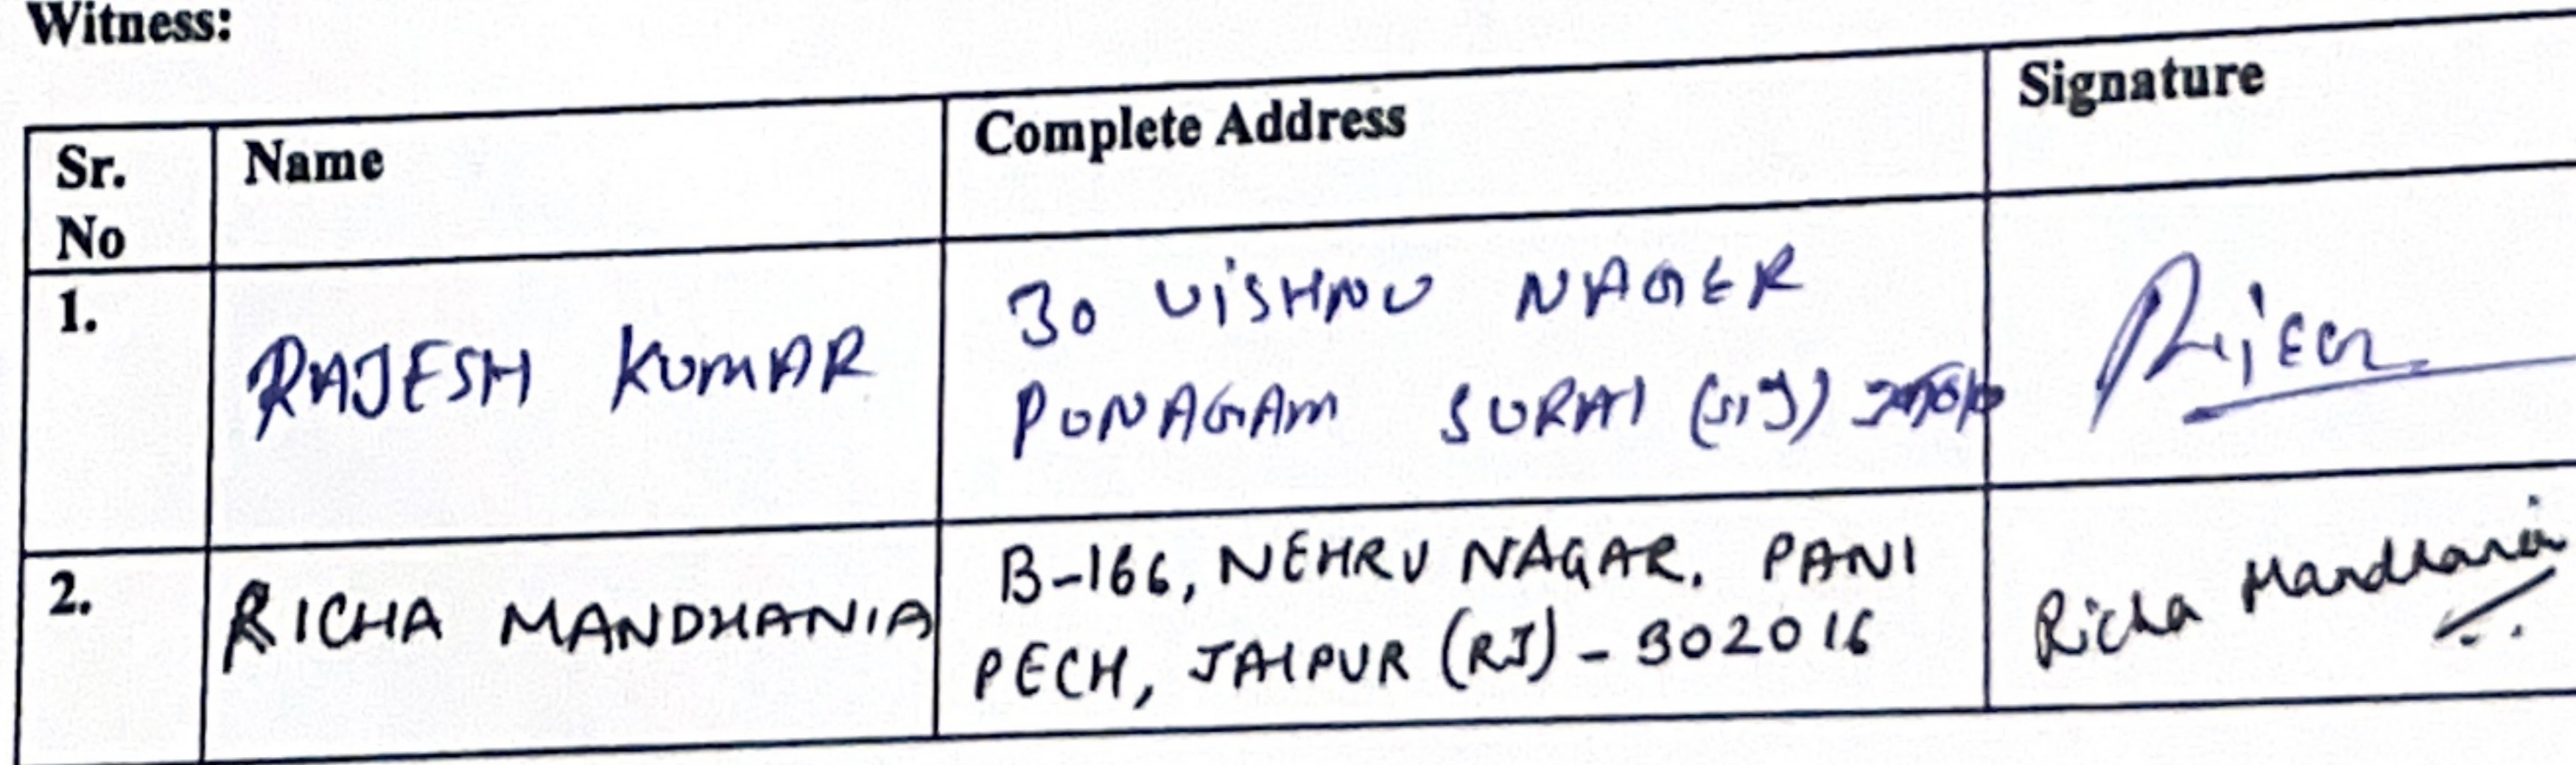 Witness:
Sr. No
Name
Complete Address
Signature
1.
RAJESH KUMAR
30 VISHNU NAGER
PUNAGAM SURAT
2.
RICHA MANDHANIA
B-166, NEHRU NAGAR, PANI
PECH, JAIPUR (RJ) - 302016
Richa Mandhania